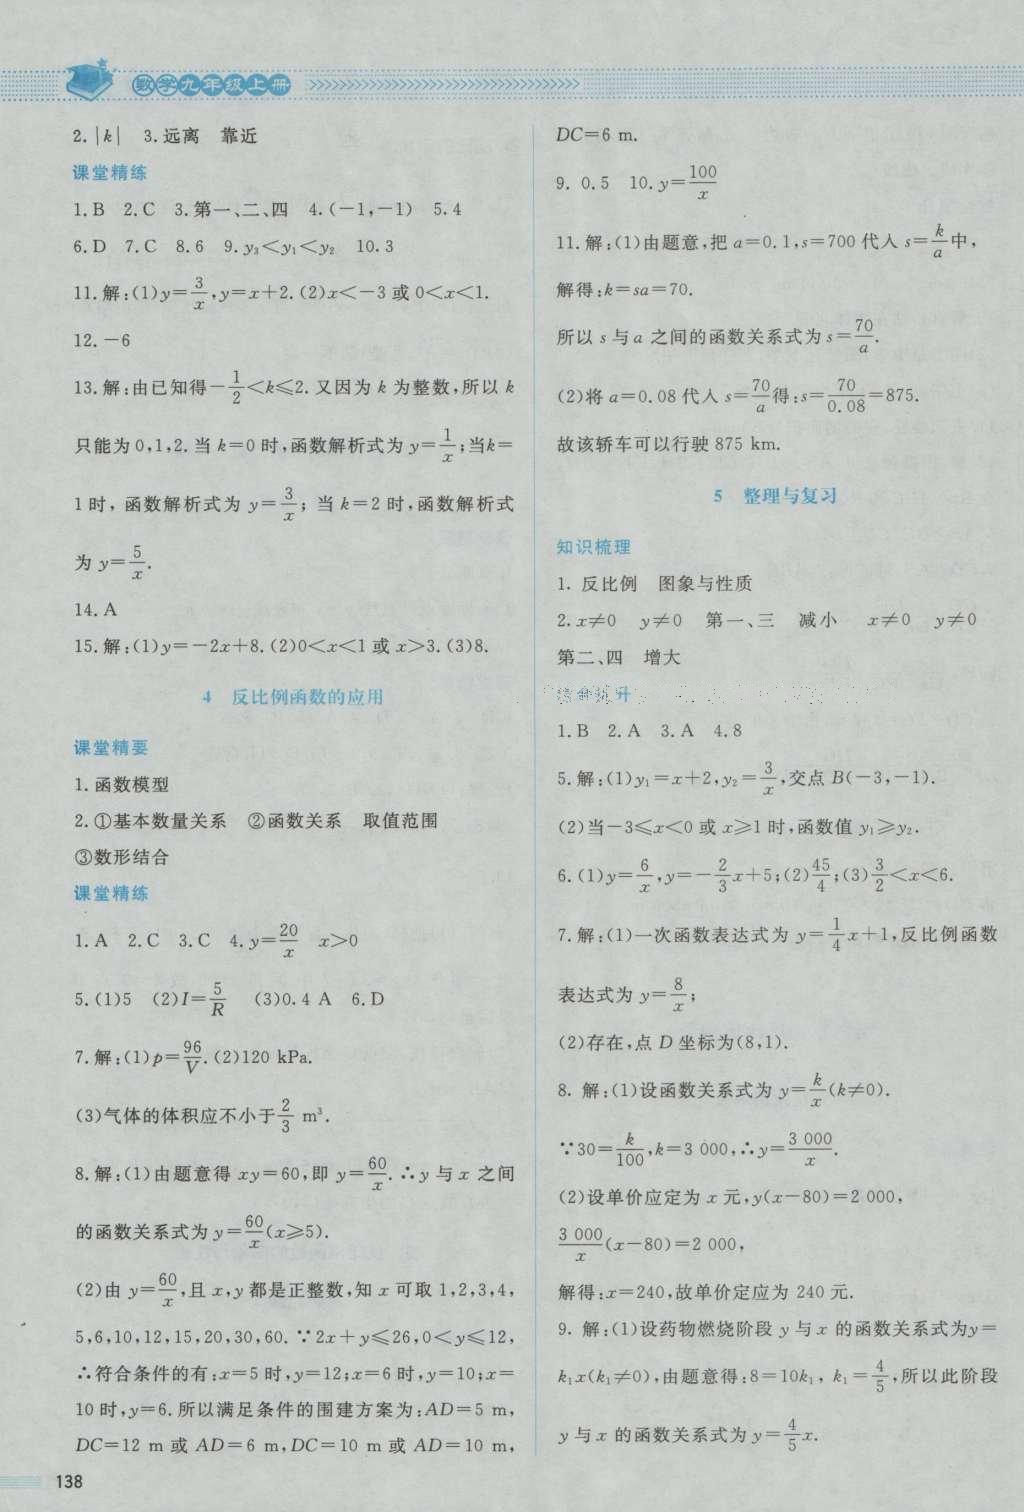 数学九年级上册
2. |k|　3. 远离　靠近
课堂精练
1. B　2. C　3. 第一、二、四　4. (-1,-1)　5. 4
6. D　7. C　8. 6　9. y₃<y₁<y₂　10. 3
11. 解:(1)y=3/x,y=x+2. (2)x<-3 或 0<x<1.
12. -6
13. 解:由已知得-1/2<k≤2. 又因为 k 为整数,所以 k
只能为 0,1,2. 当 k=0 时,函数解析式为 y=1/x;当k=
1 时, 函数解析式为 y=3/x; 当 k=2 时,函数解析式
为 y=5/x.
14. A
15. 解:(1)y=-2x+8. (2)0<x<1 或 x>3. (3)8.
4　反比例函数的应用
课堂精要
1. 函数模型
2. ①基本数量关系　②函数关系　取值范围
③数形结合
课堂精练
1. A　2. C　3. C　4. y=20/x　x>0
5. (1)5　(2)I=5/R　(3)0.4 A　6. D
7. 解:(1)p=96/V. (2)120 kPa.
(3)气体的体积应不小于2/3 m³.
8. 解:(1)由题意得 xy=60,即 y=60/x. ∴y 与 x 之间
的函数关系式为 y=60/x(x≥5).
(2)由 y=60/x,且 x,y 都是正整数,知 x 可取 1,2,3,4,
5,6,10,12,15,20,30,60. ∵2x+y≤26,0<y≤12,
∴符合条件的有:x=5 时,y=12;x=6 时,y=10;x=
10 时,y=6. 所以满足条件的围建方案为:AD=5 m,
DC=12 m 或 AD=6 m,DC=10 m 或 AD=10 m,
138
DC=6 m.
9. 0.5　10. y=100/x
11. 解:(1)由题意,把 a=0.1,s=700 代人 s=k/a中,
解得:k=sa=70.
所以 s 与 a 之间的函数关系式为 s=70/a.
(2)将 a=0.08 代人 s=70/a得:s=70/0.08=875.
故该轿车可以行驶 875 km.
5　整理与复习
知识梳理
1. 反比例　图象与性质
2. x≠0　y≠0　第一、三　减小　x≠0　y≠0
第二、四　增大
1. B　2. A　3. A　4. 8
5. 解:(1)y₁=x+2,y₂=3/x,交点 B(-3,-1).
(2)当-3≤x<0 或 x≥1 时,函数值 y₁≥y₂.
6. (1)y=6/x,y=-2/3x+5;(2)45/4;(3)3/2<x<6.
7. 解:(1)一次函数表达式为 y=1/4x+1,反比例函数
表达式为 y=8/x;
(2)存在,点 D 坐标为(8,1).
8. 解:(1)设函数关系式为 y=k/x(k≠0).
∵30=k/100,k=3 000,∴y=3 000/x.
(2)设单价应定为 x 元,y(x-80)=2 000,
3 000/x(x-80)=2 000,
解得:x=240,故单价定应为 240 元.
9. 解:(1)设药物燃烧阶段 y 与 x 的函数关系式为y=
k₁x(k₁≠0),由题意得:8=10k₁, k₁=4/5,所以此阶段
y 与 x 的函数关系式为 y=4/5x.